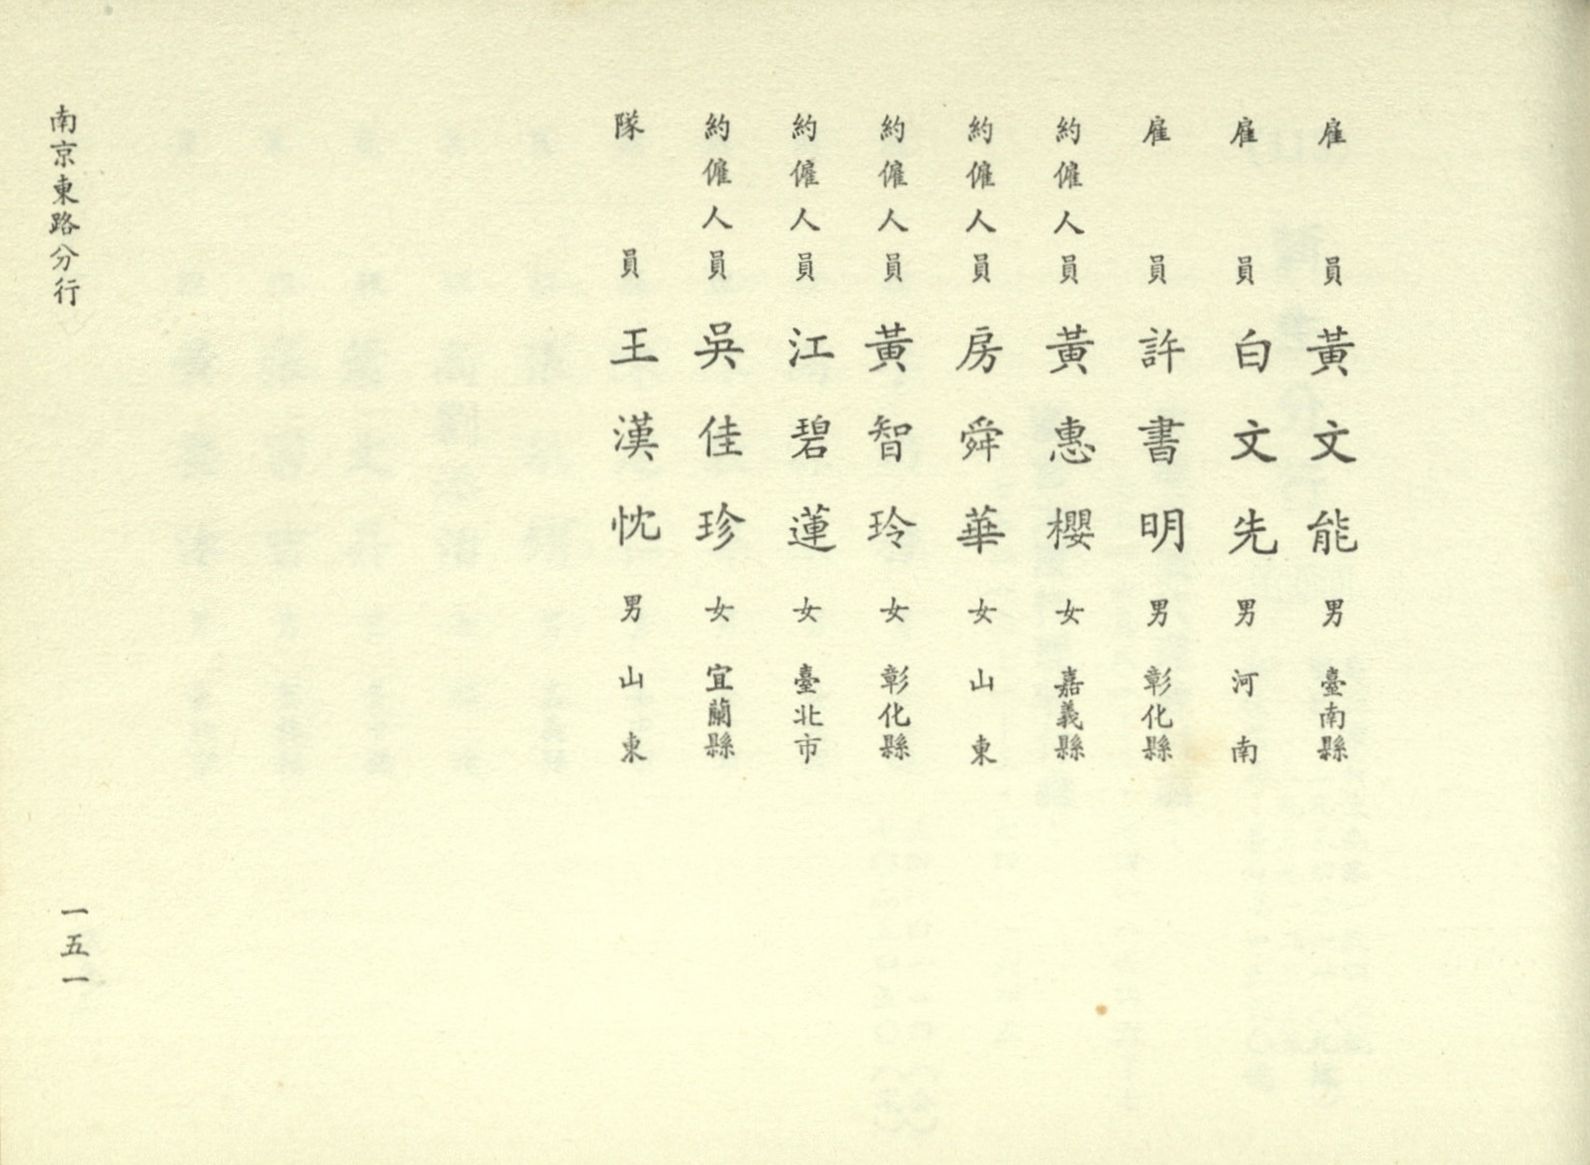 雇員 黃文能 男 臺南縣
雇員 白文先 男 河南
雇員 許書明 男 彰化縣
約僱人員 黃惠櫻 女 嘉義縣
約僱人員 房舜華 女 山東
約僱人員 黃智玲 女 彰化縣
約僱人員 江碧蓮 女 臺北市
約僱人員 吳佳珍 女 宜蘭縣
隊員 王漢忱 男 山東
南京東路分行
一五一